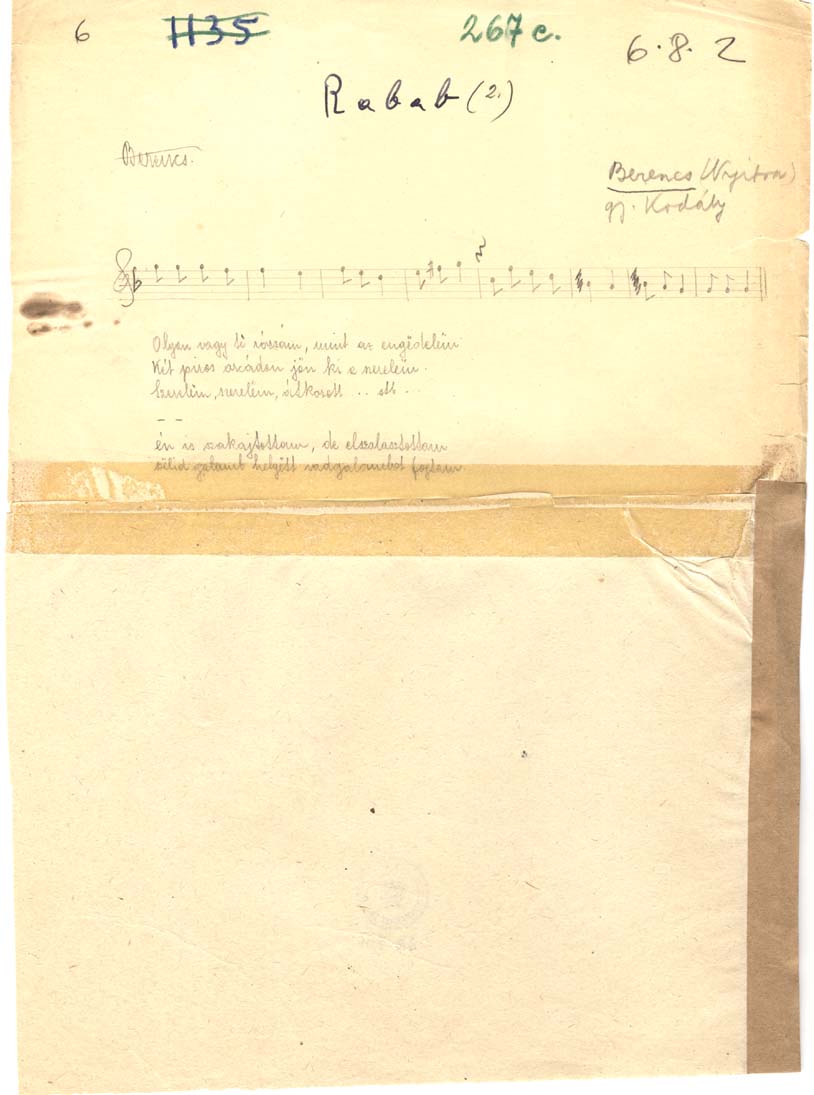 6
1135
267 c.
6.8.2
Rabab (2.)
Berencs.
Berencs (Nyitra)
gy. Kodály
Olyan vagy të rózsám, mint az engëdelëm
Két piros orcádon jön ki a szerelëm.
Szerelëm, szerelëm, átkozott .. stb ..
– –
én is szakajtottam, de elszalasztottam
szëlid galamb helyëtt vadgalambot fogtam.